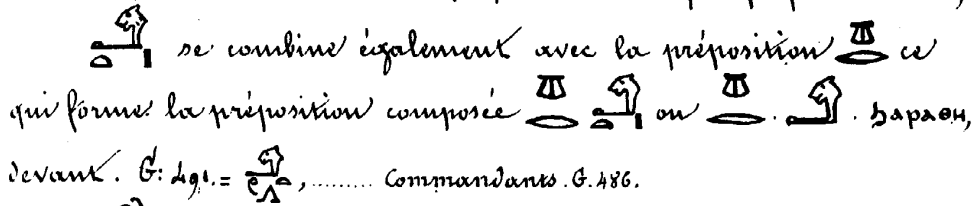 𓄂𓏏𓏤 se combine également avec la préposition 𓐍𓂋 ce
qui forme la préposition composée 𓐍𓂋 𓄂𓏏𓏤 ou . . ϧⲁⲣⲁⲑⲏ,
devant. G: 491. = , ........ Commandants. G. 486.